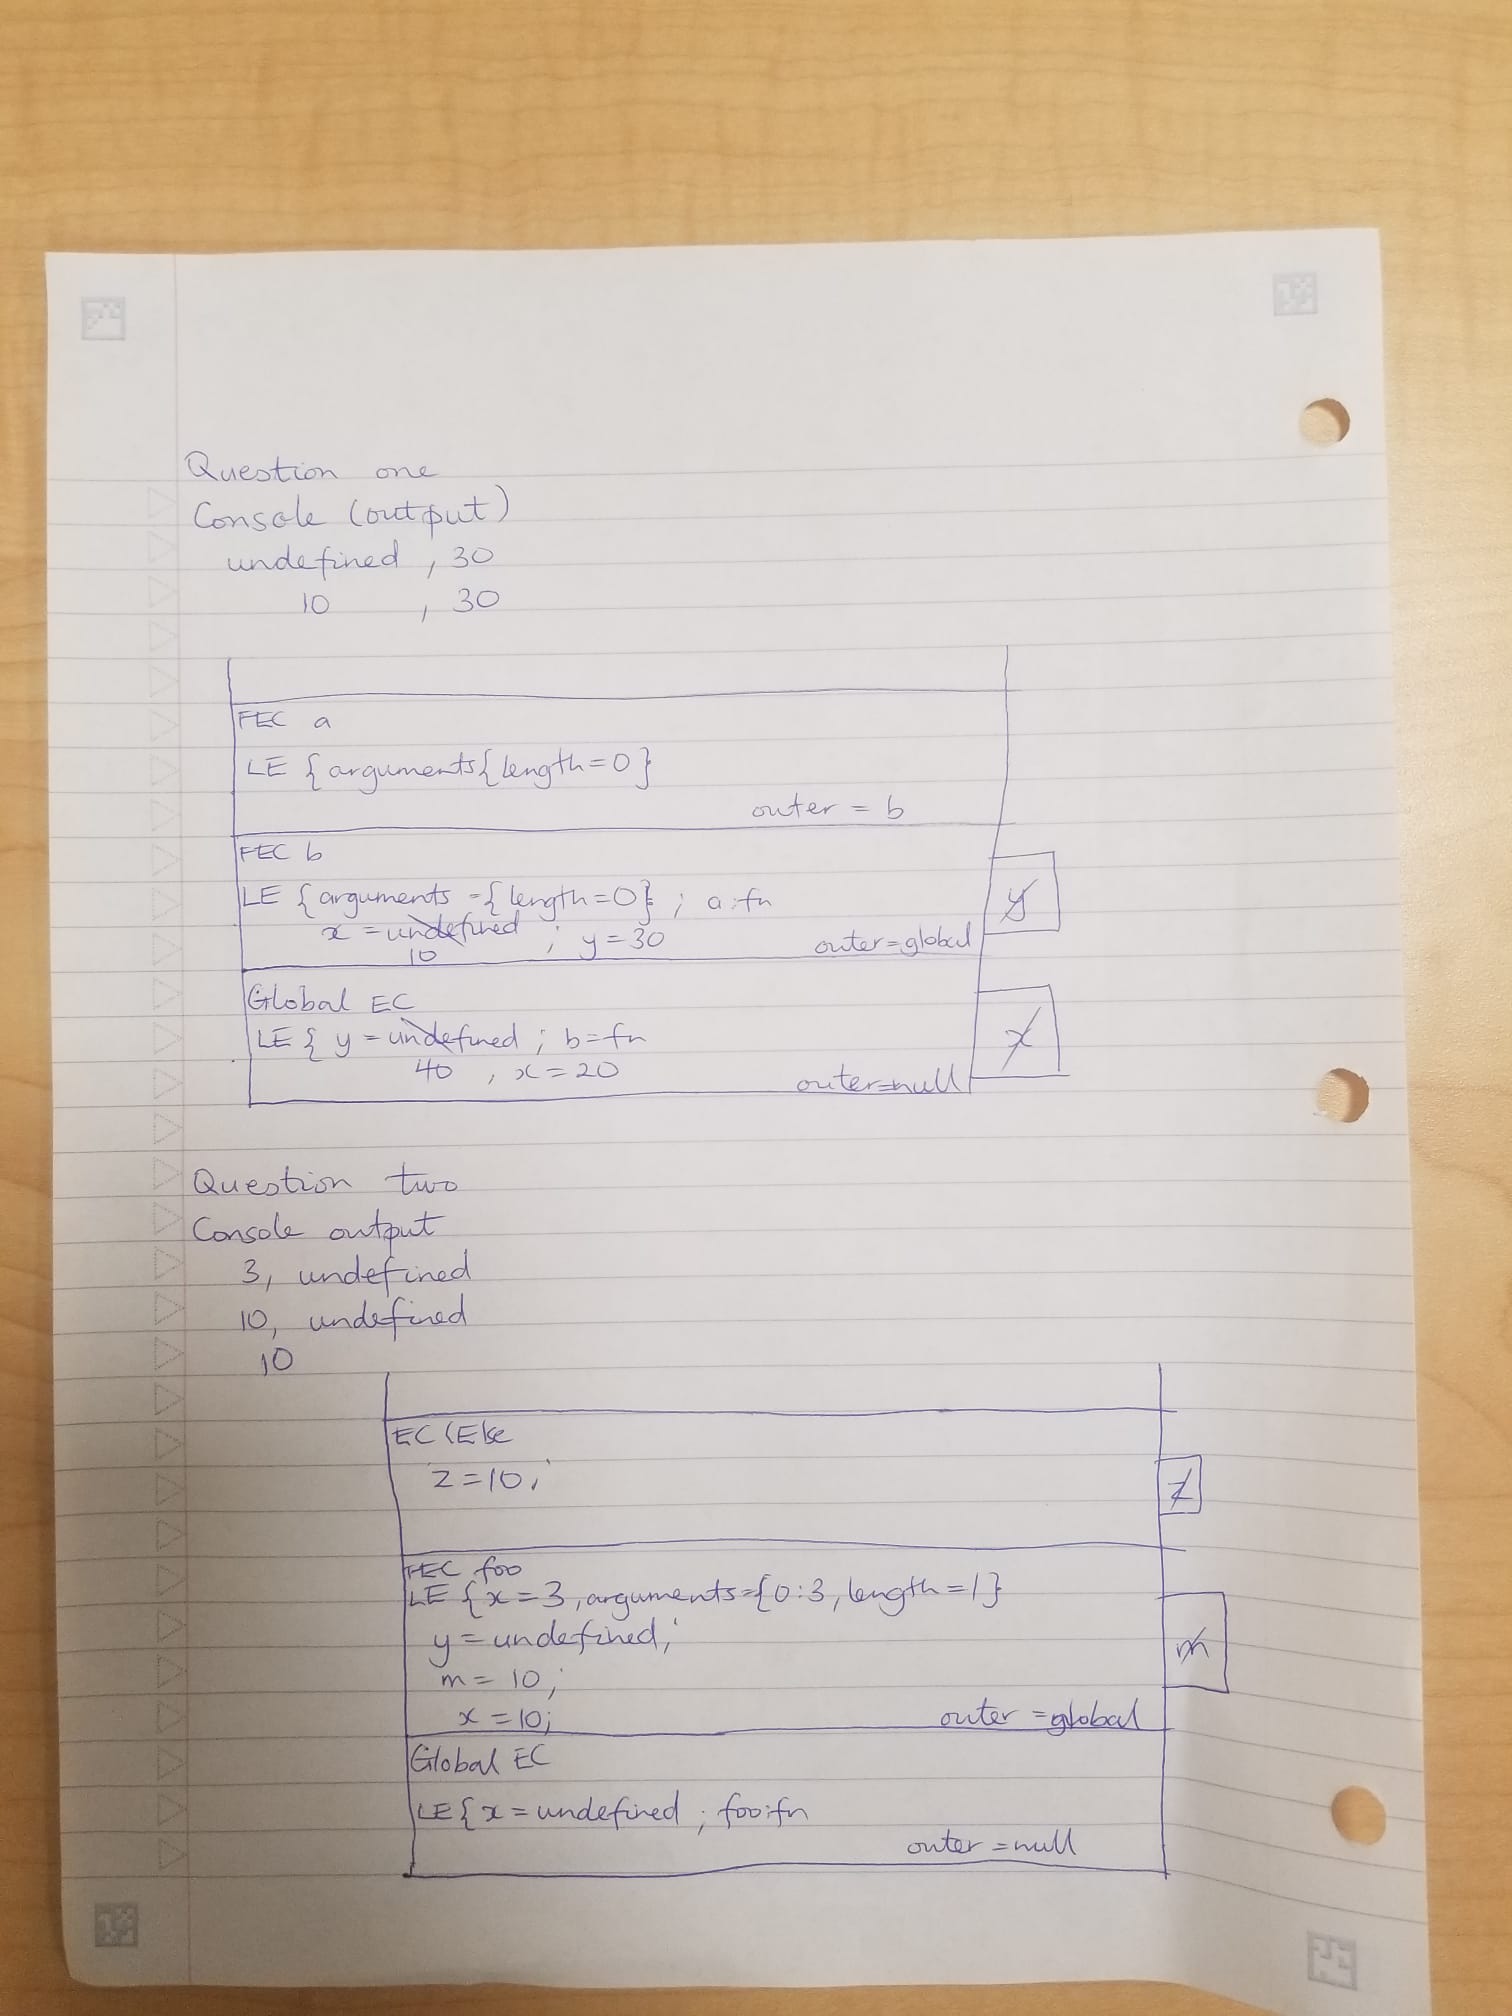 Question one
Console (output)
undefined , 30
10 , 30
FEC a
LE { arguments{ length=0}
outer = b
FEC b
LE { arguments ={ length=0} ; a:fn
x = undefined ; y=30
10
outer=global
y
Global EC
LE { y = undefined ; b=fn
40 , x=20
outer=null
x
Question two
Console output
3, undefined
10, undefined
10
EC (Else
z=10;
z
FEC foo
LE { x=3, arguments={0:3, length=1}
y=undefined;
m= 10;
x =10;
outer =global
m
Global EC
LE{ x = undefined ; foo:fn
outer =null